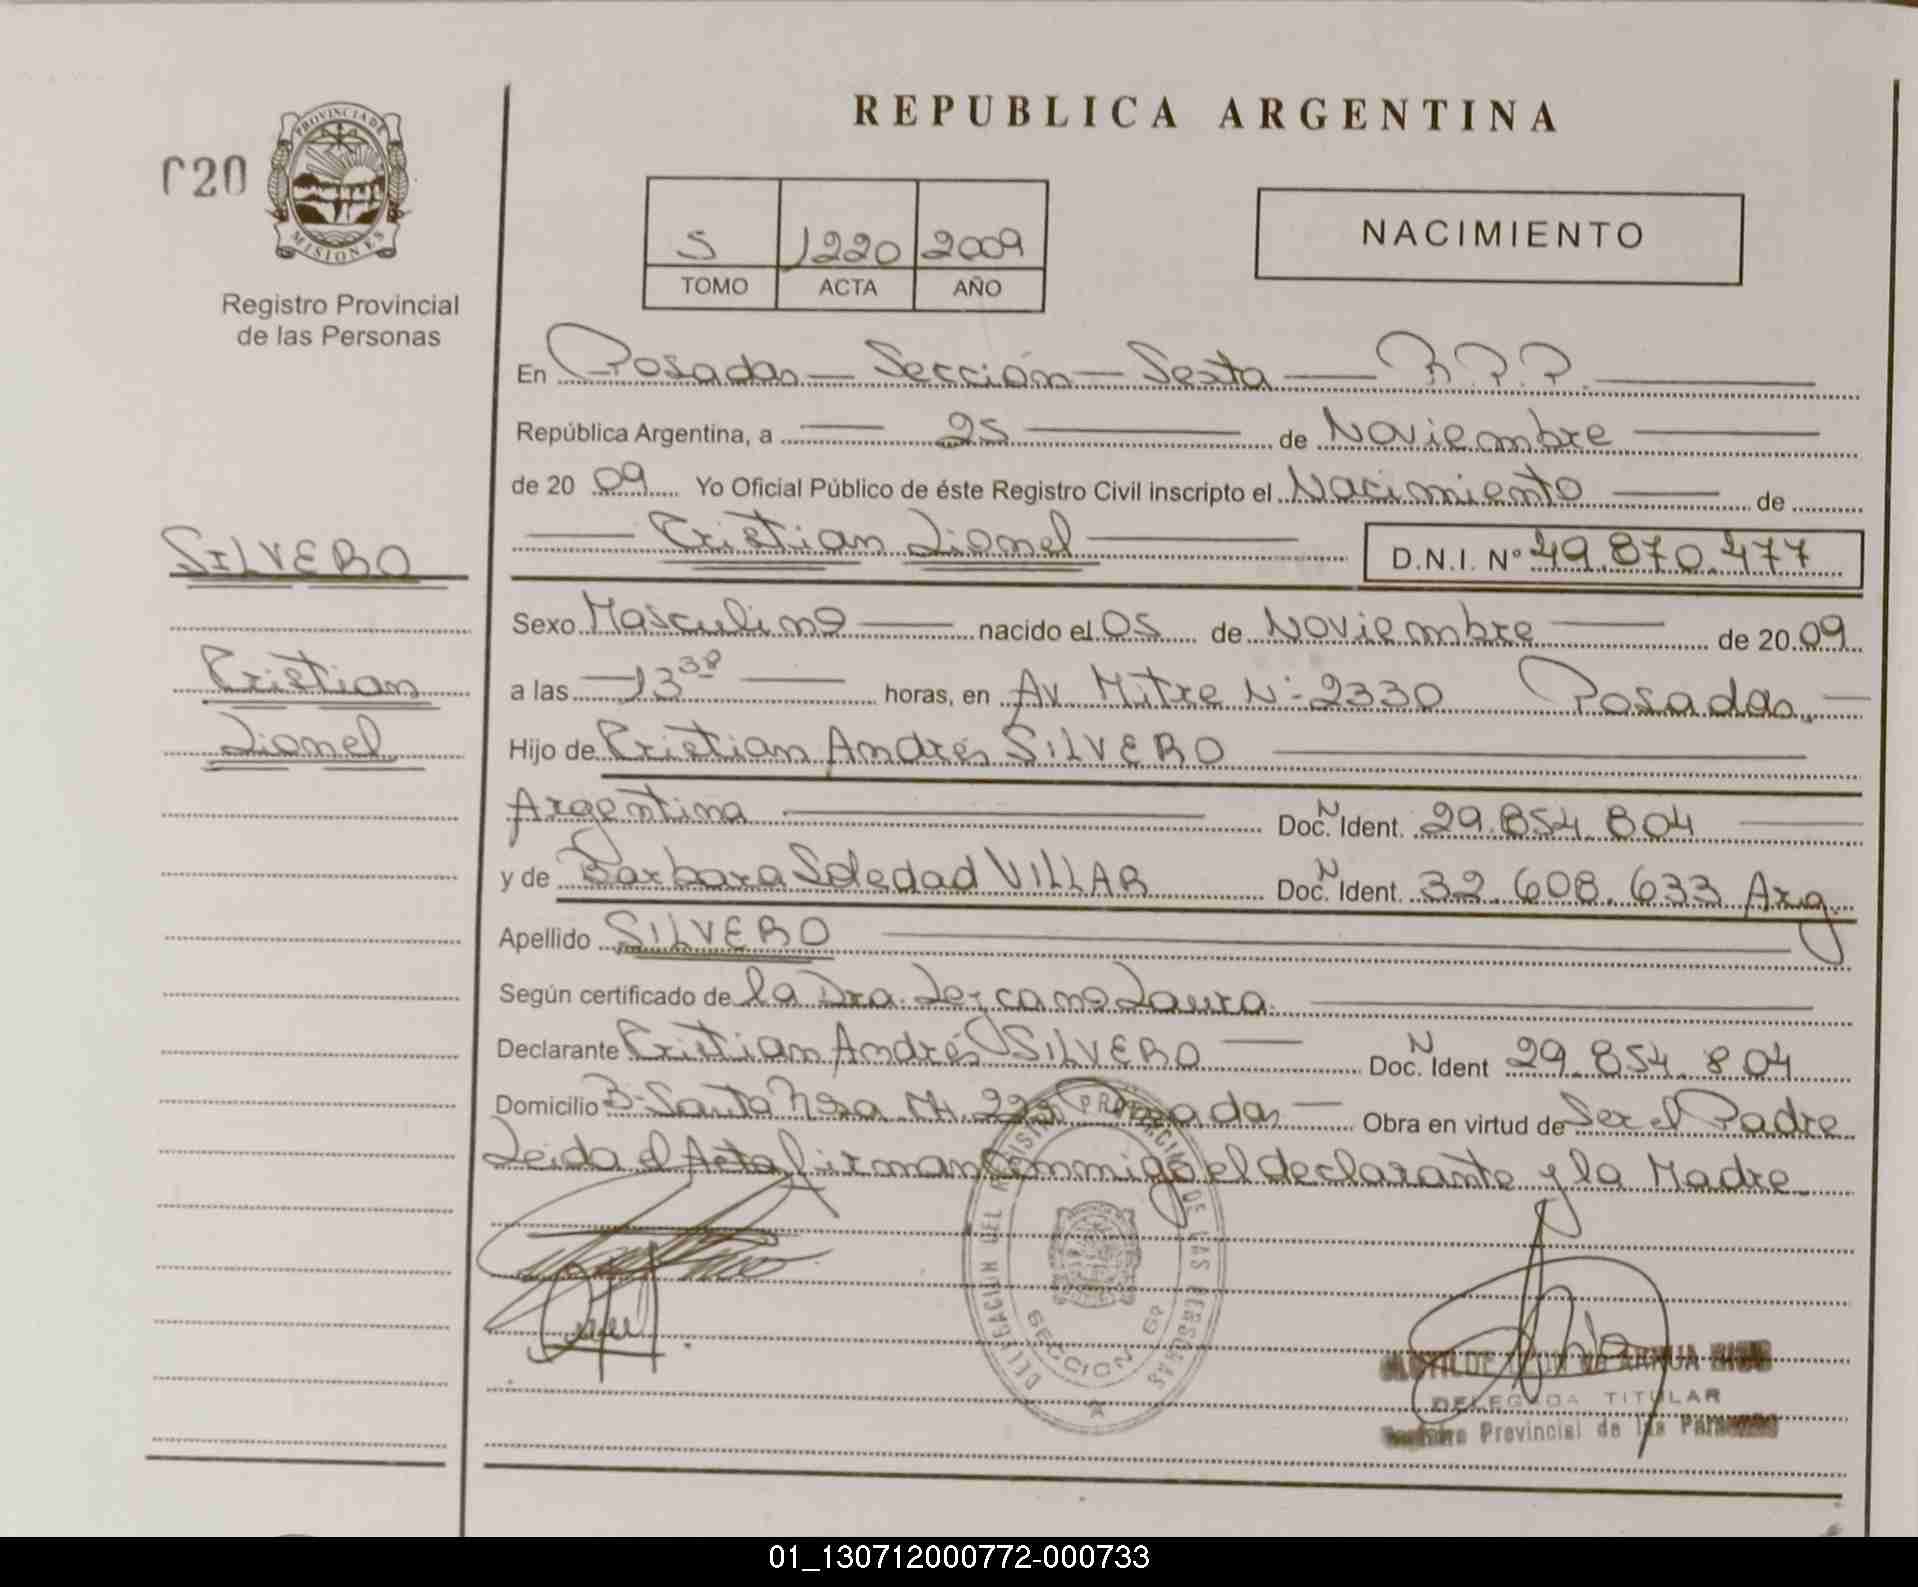 REPUBLICA ARGENTINA
020
PROVINCIA DE
MISIONES
Registro Provincial
de las Personas
5 1220 2009
TOMO ACTA AÑO
NACIMIENTO
En Posadas - Sección - Sexta - R.P.P.
República Argentina, a 25 de Noviembre
de 20 09 Yo Oficial Público de éste Registro Civil inscripto el Nacimiento de
Cristian Lionel D.N.I. Nº 49.870.477
SILVERO
Cristian
Lionel
Sexo Masculino nacido el 05 de Noviembre de 20 09
a las 13 30 horas, en Av. Mitre Nº 2330 Posadas.
Hijo de Cristian Andrés SILVERO
Argentina Doc. N Ident. 29.854.804
y de Barbara Soledad VILLAR Doc. N Ident. 32.608.633 Arg.
Apellido SILVERO
Según certificado de la Dra. Lezcano Laura.
Declarante Cristian Andrés SILVERO Doc. N Ident 29.854.804
Domicilio Bº Santa Posadas Obra en virtud de Ser el Padre
Leida el Acta firman Conmigo el declarante y la Madre.
DELEGACION DEL REGISTRO PROVINCIAL DE LAS PERSONAS
SECCION 6ª
DELEGADA TITULAR
Registro Provincial de las Personas
01_130712000772-000733